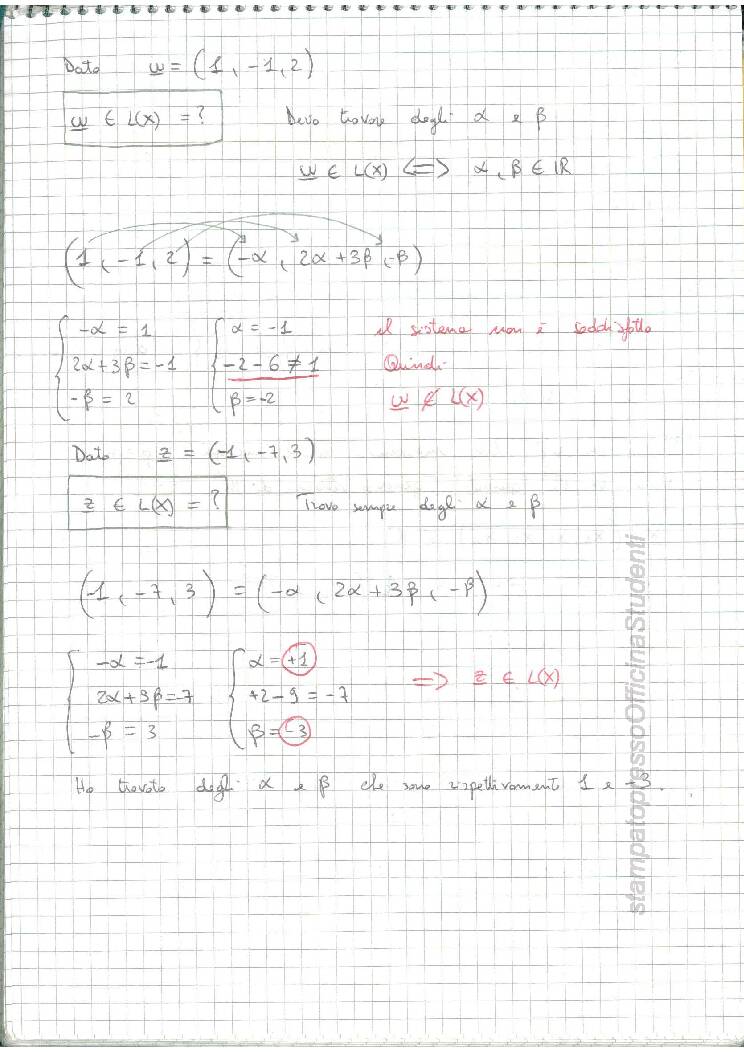 Dato w = (1, -1, 2)
w ∈ L(X) = ? Devo trovare degli α e β
w ∈ L(X) <=> α, β ∈ IR
(1, -1, 2) = (-α, 2α + 3β, -β)
{ -α = 1 { α = -1 il sistema non è soddisfatto
2α + 3β = -1 -2 - 6 ≠ 1 Quindi
-β = 2 β = -2 w ∉ L(X)
Dato z = (-1, -7, 3)
z ∈ L(X) = ? Trovo sempre degli α e β
(-1, -7, 3) = (-α, 2α + 3β, -β)
{ -α = -1 { α = +1 => z ∈ L(X)
2α + 3β = -7 +2 - 9 = -7
-β = 3 β = -3
Ho trovato degli α e β che sono rispettivamente 1 e -3.
stampatopressoOfficinaStudenti